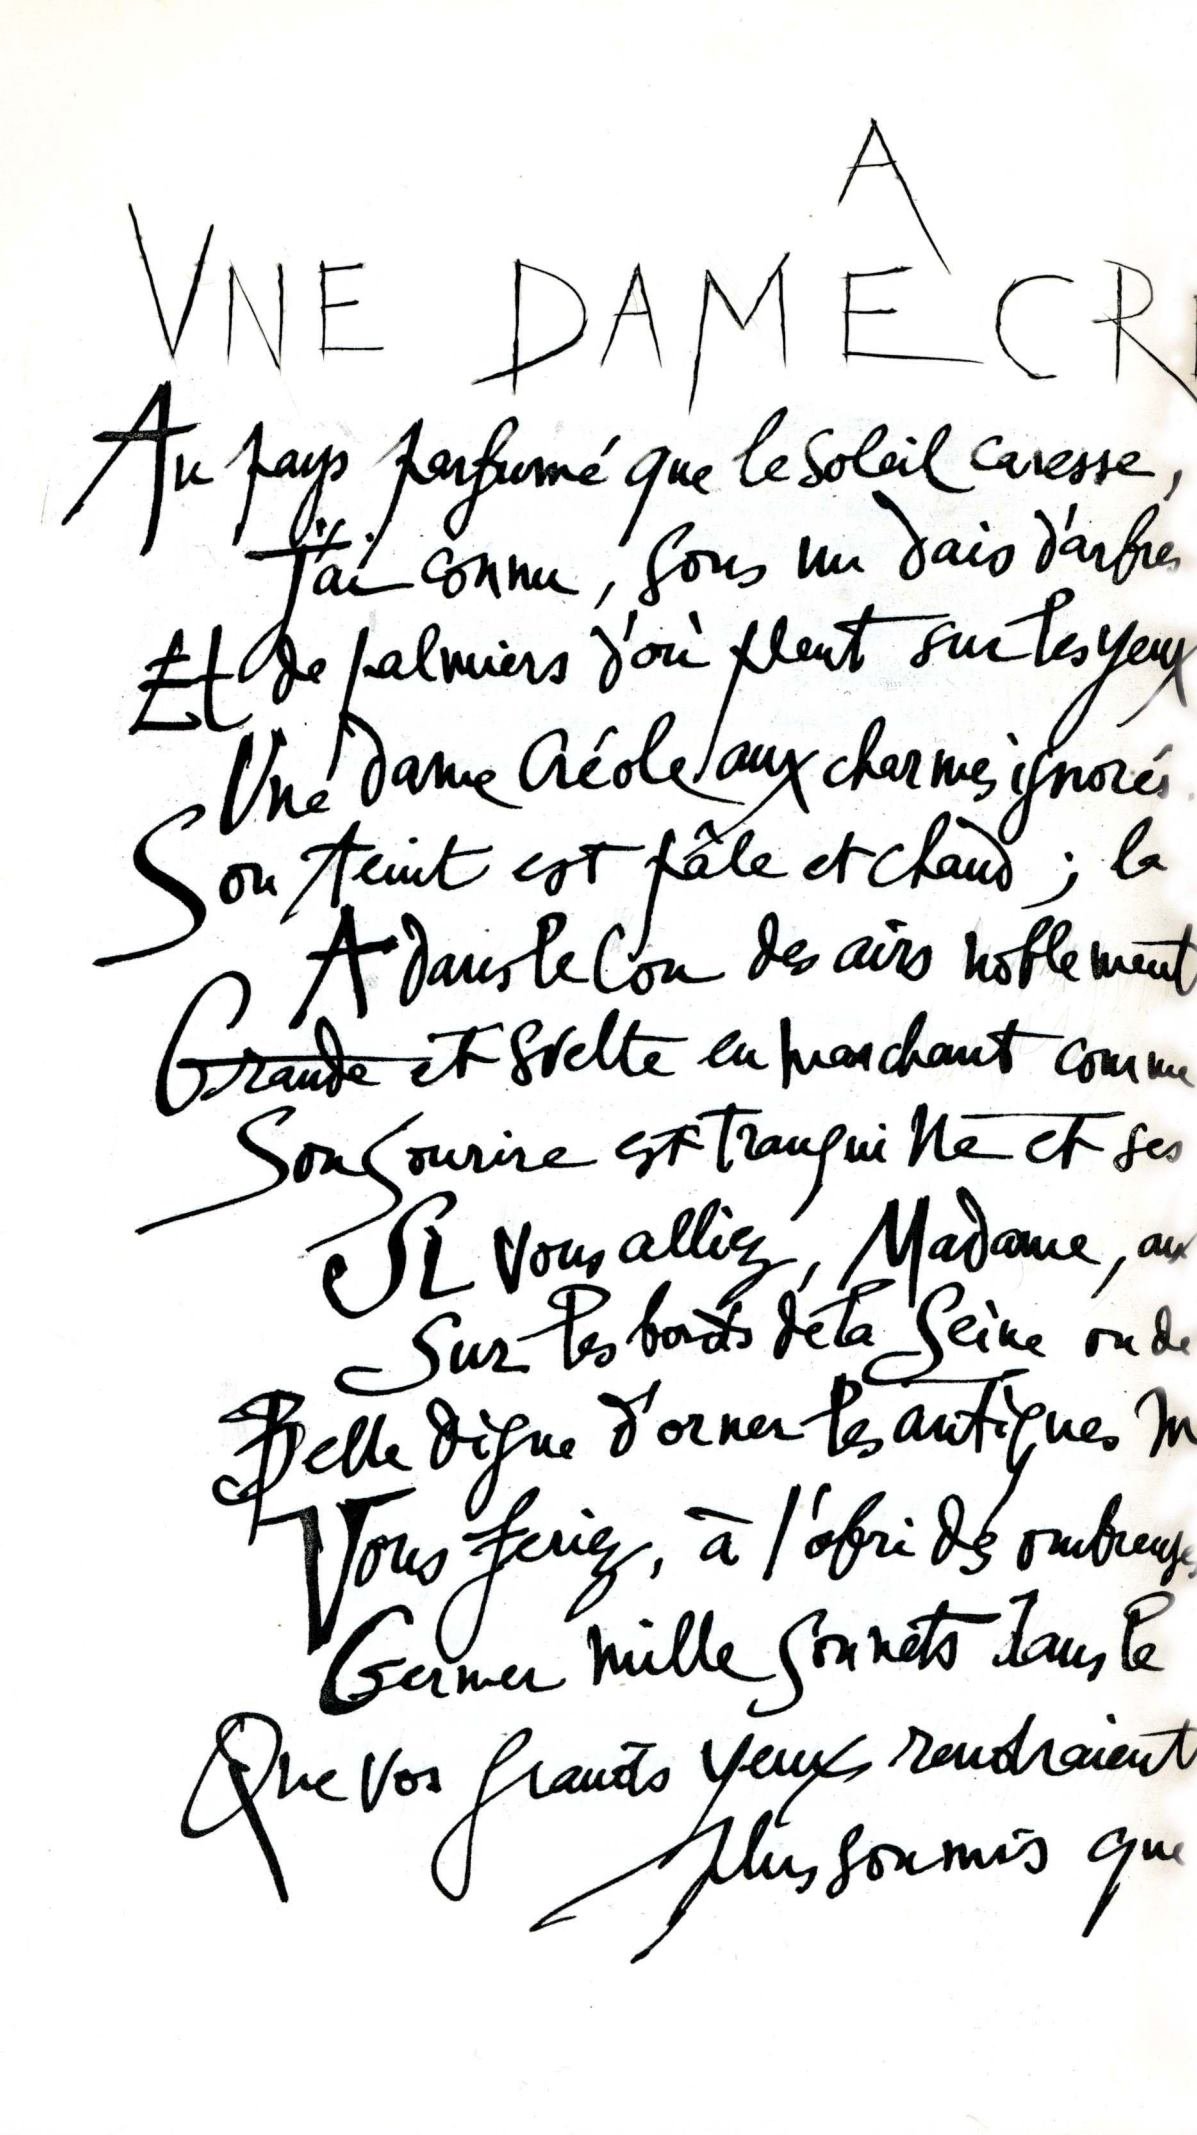 A
VNE DAME CR
Au pays parfumé que le soleil caresse,
J'ai connu, sous un dais d'arbres
Et de palmiers d'où pleut sur les yeux
Une dame Créole aux charmes ignorés.
Son teint est pâle et chaud ; la
A dans le cou des airs noblement
Grande et svelte en marchant comme
Son sourire est tranquille et ses
Si vous alliez, Madame, au
Sur les bords de la Seine ou de
Belle digne d'orner les antiques m
Vous feriez, à l'abri des ombreuses
Germer mille sonnets dans le
Que vos grands yeux rendraient
plus soumis que